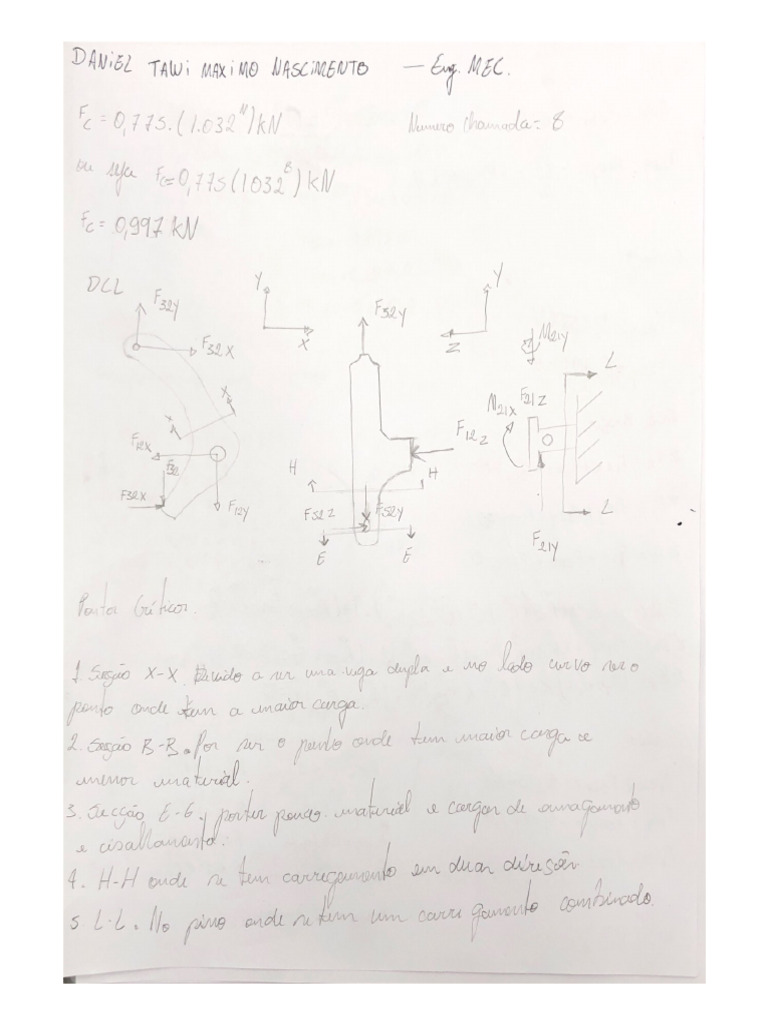 DANIEL TAWI MAXIMO NASCIMENTO — Eng. MEC.
Fc = 0,775.(1.032^N) kN Numero chamada = 8
ou seja Fc = 0,775(1032^8) kN
Fc = 0,997 kN
DCL
F32Y
F32X
X
X
F12X
F32
F32X
F12Y
Y
X
F32Y
F12Z
H
H
F52Z
F52Y
E
E
Y
Z
M21Y
M21X
F21Z
L
L
F21Y
Pontos Críticos.
1. Seção X-X. Devido a ser uma viga dupla e no lado curvo ser o
ponto onde tem a maior carga.
2. Seção B-B. Por ser o ponto onde tem maior carga e
menor material.
3. Secção E-E, por ter pouco material e cargas de esmagamento
e cisalhamento.
4. H-H onde se tem carregamento em duas direções
5 L-L. No pino onde se tem um carregamento combinado.